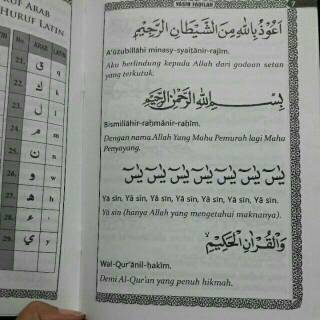 RUF ARAB
HURUF LATIN
No. ARAB LATIN
21. ق q
22. ك k
23. ل l
24. م m
25. ن n
26. و w
27. ه h
28. ء ʼ
29. ي y
YASIN FADILAH
اَعُوْذُ بِاللهِ مِنَ الشَّيْطَانِ الرَّجِيْمِ
A'ūzubillāhi minasy-syaiṭānir-rajīm.
Aku berlindung kepada Allah dari godaan setan
yang terkutuk.
بِسْــمِ اللهِ الرَّحْمٰنِ الرَّحِيْمِ
Bismillāhir-raḥmānir-raḥīm.
Dengan nama Allah Yang Maha Pemurah lagi Maha
Penyayang.
يٰسۤ يٰسۤ يٰسۤ يٰسۤ يٰسۤ يٰسۤ يٰسۤ
Yā sīn, Yā sīn, Yā sīn, Yā sīn, Yā sīn, Yā sīn, Yā sīn.
Yā sīn (hanya Allah yang mengetahui maknanya).
وَالْقُرْاٰنِ الْحَكِيْمِۙ
Wal-Qur'ānil-ḥakīm.
Demi Al-Qur'an yang penuh hikmah.